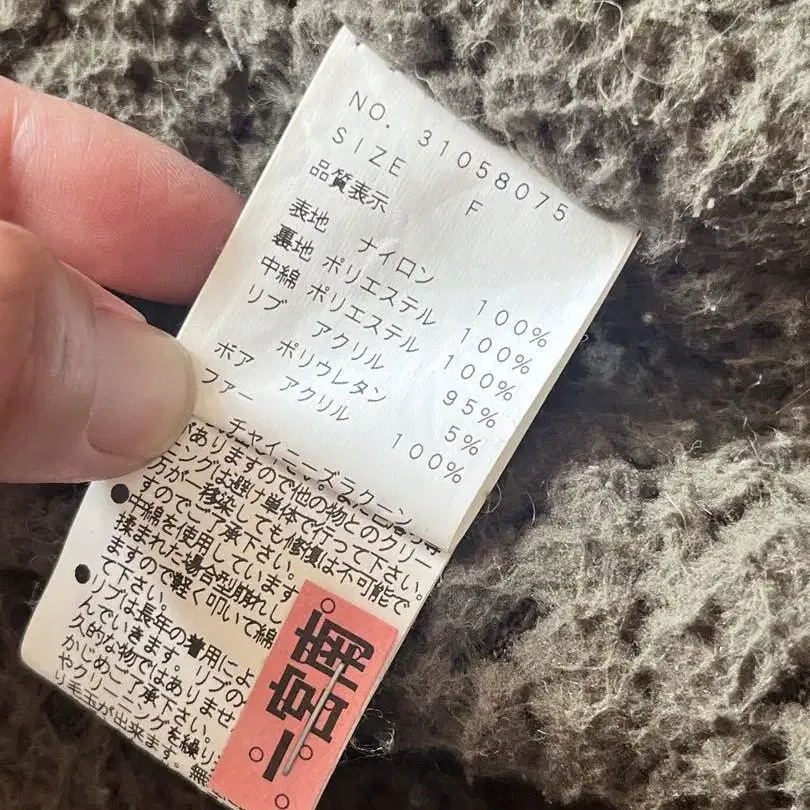 NO. 31058075
SIZE F
品質表示
表地 ナイロン 100%
裏地 ポリエステル 100%
中綿 ポリエステル 100%
リブ アクリル 95%
ポリウレタン 5%
ボア アクリル 100%
ファー
がありますので他の物とのクリー
ニングは避け単体で行って下さい。
万が一移染しても修復は不可能で
すのでご了承下さい。
中綿を使用しています
揉まれた場合型崩れし
ますので軽く叩いて綿
て下さい。
リブは長年の着用によ
んでいきます。リブの
久的な物ではありませ
かじめご了承下さい。
やクリーニングを繰り
り毛玉が出来ます。無
一宮南